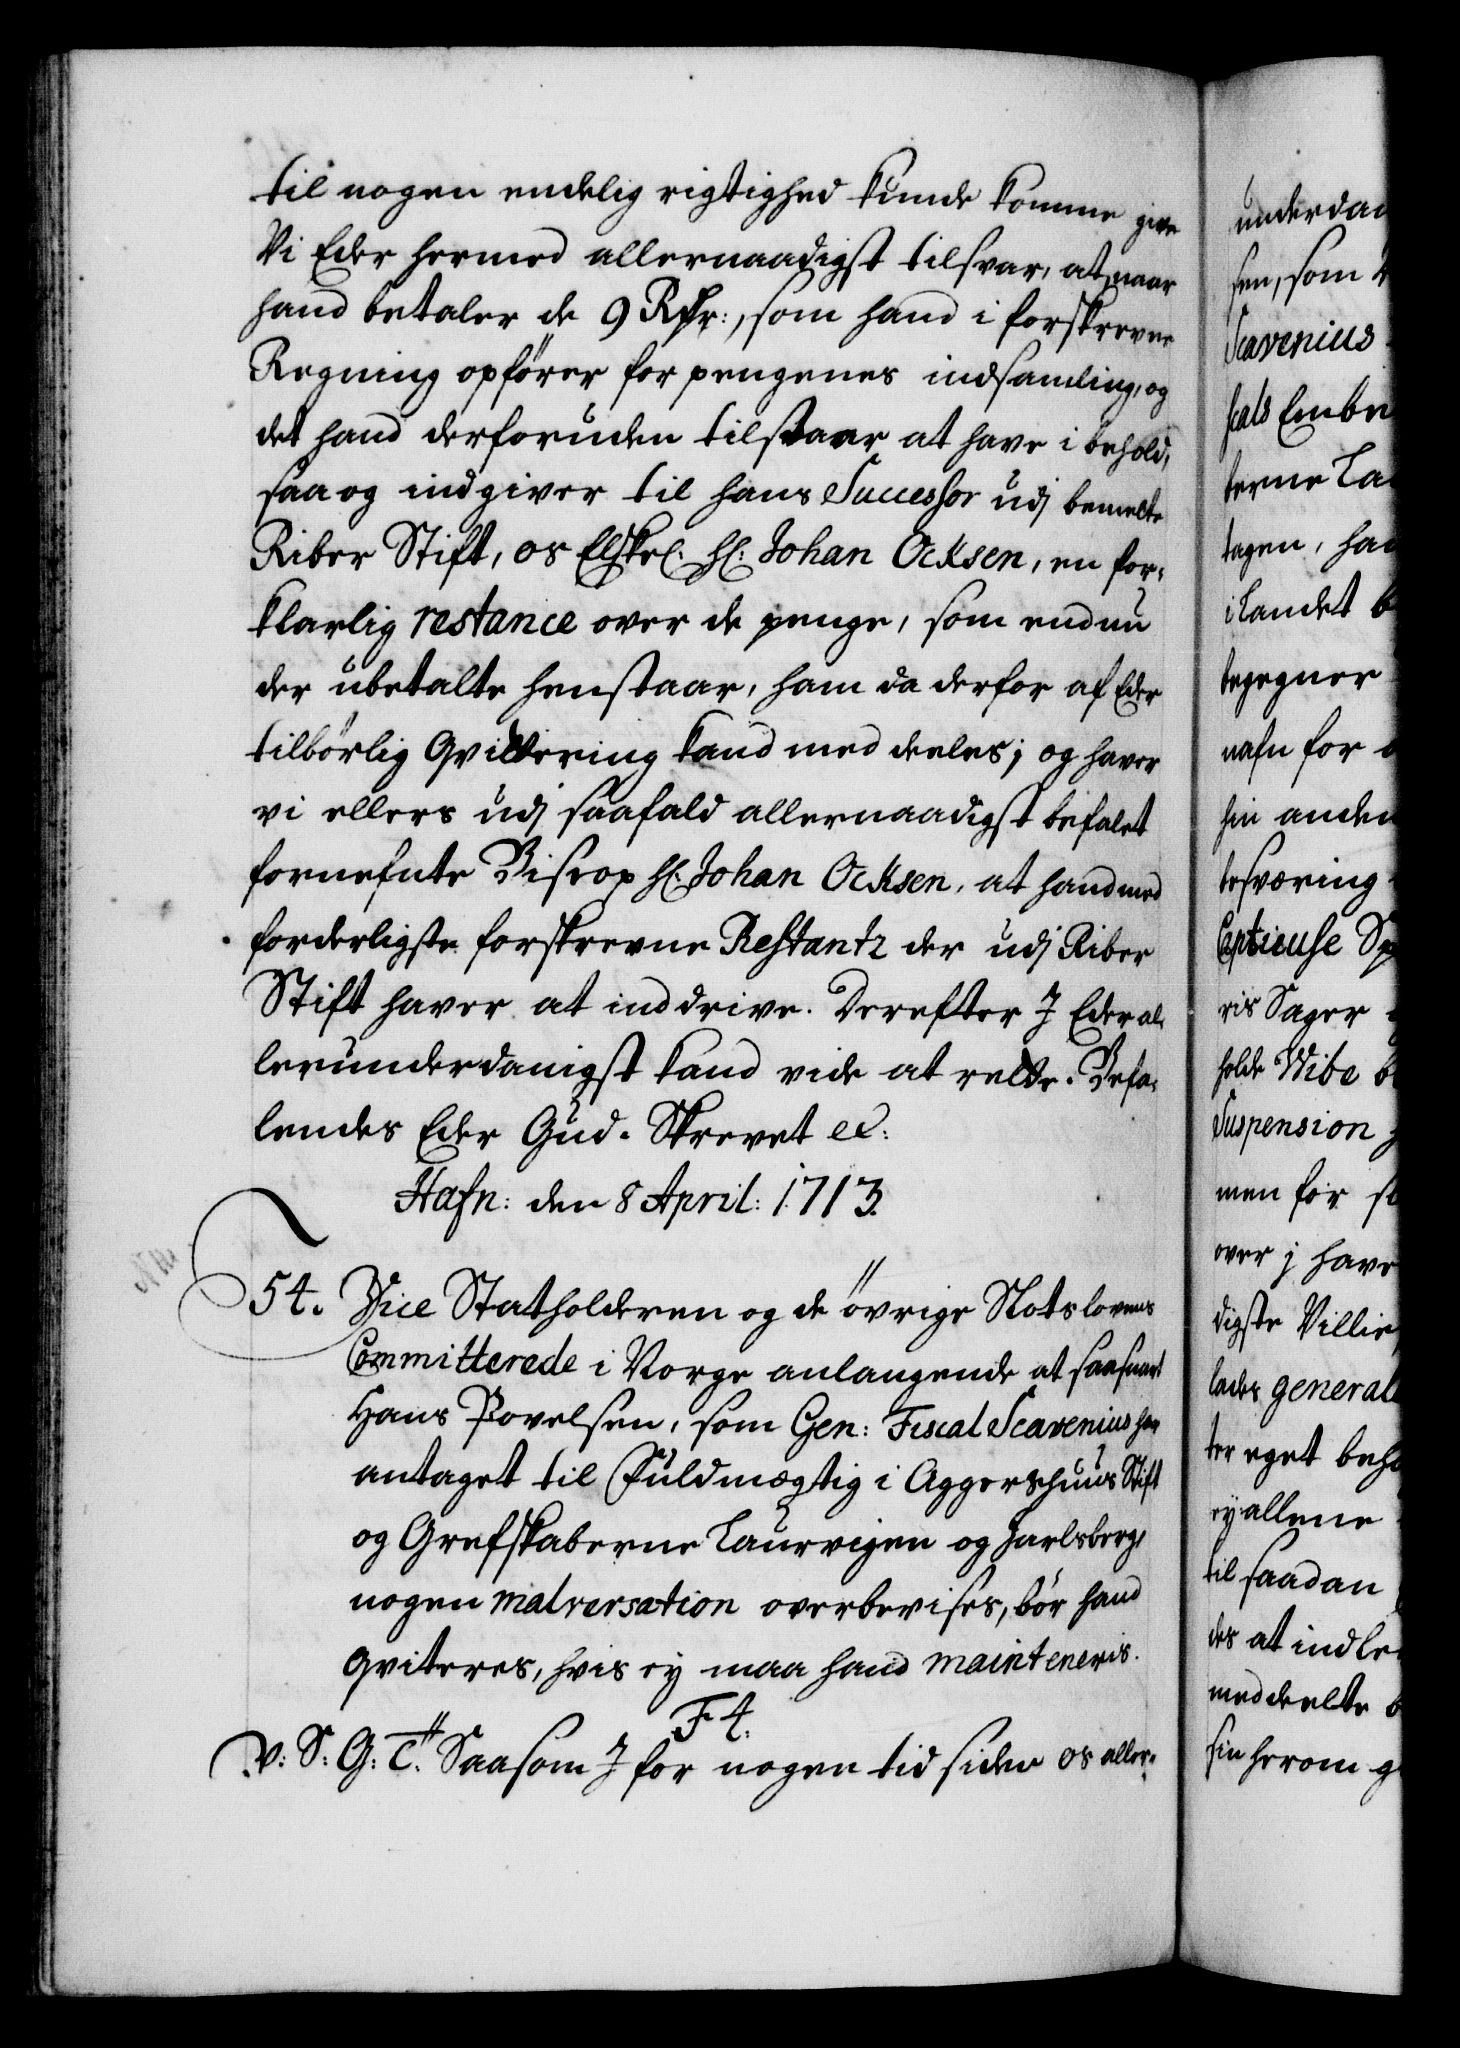 til nogen endelig rigtighed kunde komme give
Vi Eder hermed allernaadigst tilsvar, at naar
hand betaler de 9 Rdr:, som hand i forskrevne
Regning opfører for pengenes indsamling, og
det hand derforuden tilstaar at have i behold,
saa og indgiver til hans Successor udj bemelte
Riber Stift, os Elskel. Hr: Johan Ocksen, en for-
klarlig restance over de penge, som endnu
der ubetalte henstaar, ham da derfor af Eder
tilbørlig Qvittering kand meddeeles; og haver
vi ellers udj saafald allernaadigst befalet
fornefnte Biscop Hr: Johan Ocksen, at hand med
forderligste forskrevne Restantz der udj Riber
Stift haver at inddrive. Derefter J Eder al-
lerunderdanigst kand vide at rette. Befa-
lendes Eder Gud. Skrevet ec:
Hafn: den 8 April: 1713.
54. Vice Statholderen og de øvrige Slotslovens
Committerede i Norge anlangende at saasnart
Hans Povelsen, som Gen: Fiscal Scavenius har
antaget til Fuldmægtig i Aggershuus Stift
og Grefskaberne Laurvigen og Jarlsberg,
nogen malversation overbevises, bør hand
qviteres, hvis ey maa hand mainteneris.
F 4.
V: S: G: T: Saasom J for nogen tid siden os aller-
underdan
sen, som
Scavenius
scals Embe
terne La
tagen, ha
i Landet b
begegner
nafn for
sin anden
besværing
Captieuse Sp
ris Sager
holde Wibe b
Suspension
men for s
over j have
digste Villie
lades general
ter eget beh
ey allene
til saadan
des at indle
meddeelte b
sin herom g